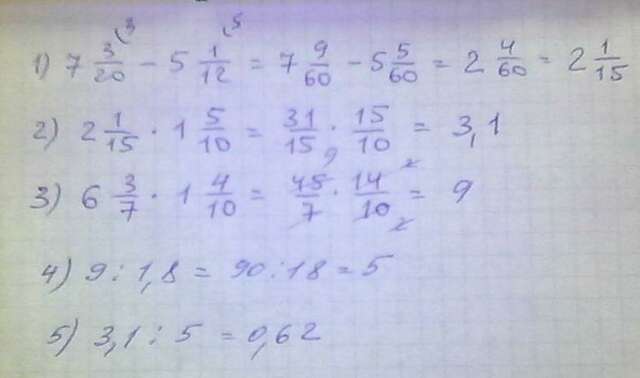 1) 7 3/20 - 5 1/12 = 7 9/60 - 5 5/60 = 2 4/60 = 2 1/15
2) 2 1/15 · 1 5/10 = 31/15 · 15/10 = 3,1
3) 6 3/7 · 1 4/10 = 45/7 · 14/10 = 9
4) 9 : 1,8 = 90 : 18 = 5
5) 3,1 : 5 = 0,62